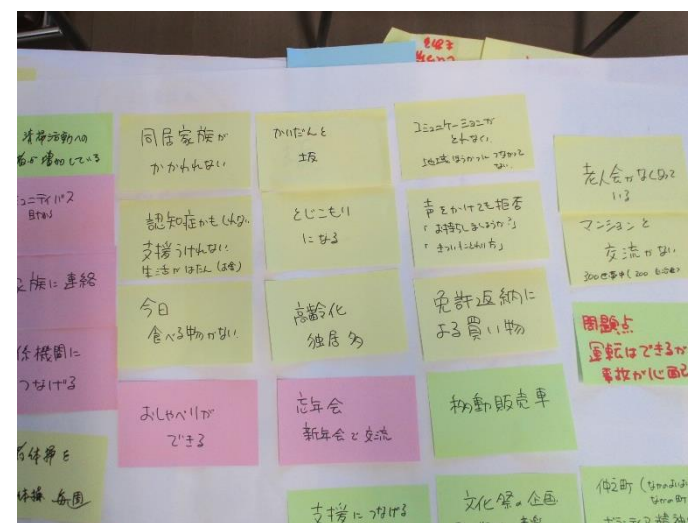 清掃活動への
増加している
ユニティバス
家族に連絡
係機関に
つなげる
体操を
体操 毎週
同居家族が
かかわれない
認知症かもしれない
支援うけれない
生活がはたん(お金)
今日
食べる物がない
おしゃべりが
できる
かいだんと
坂
とじこもり
になる
高齢化
独居多
忘年会
新年会で交流
支援につなげる
コミュニケーションが
とれない
地域ほうかつにつながって
ない
声をかけても拒否
「お持ちしましょうか?」
免許返納に
よる買い物
移動販売車
文化祭の企画
老人会がなくなって
いる
マンションと
交流がない
問題点
運転はできるが
事故が心配
仲之町